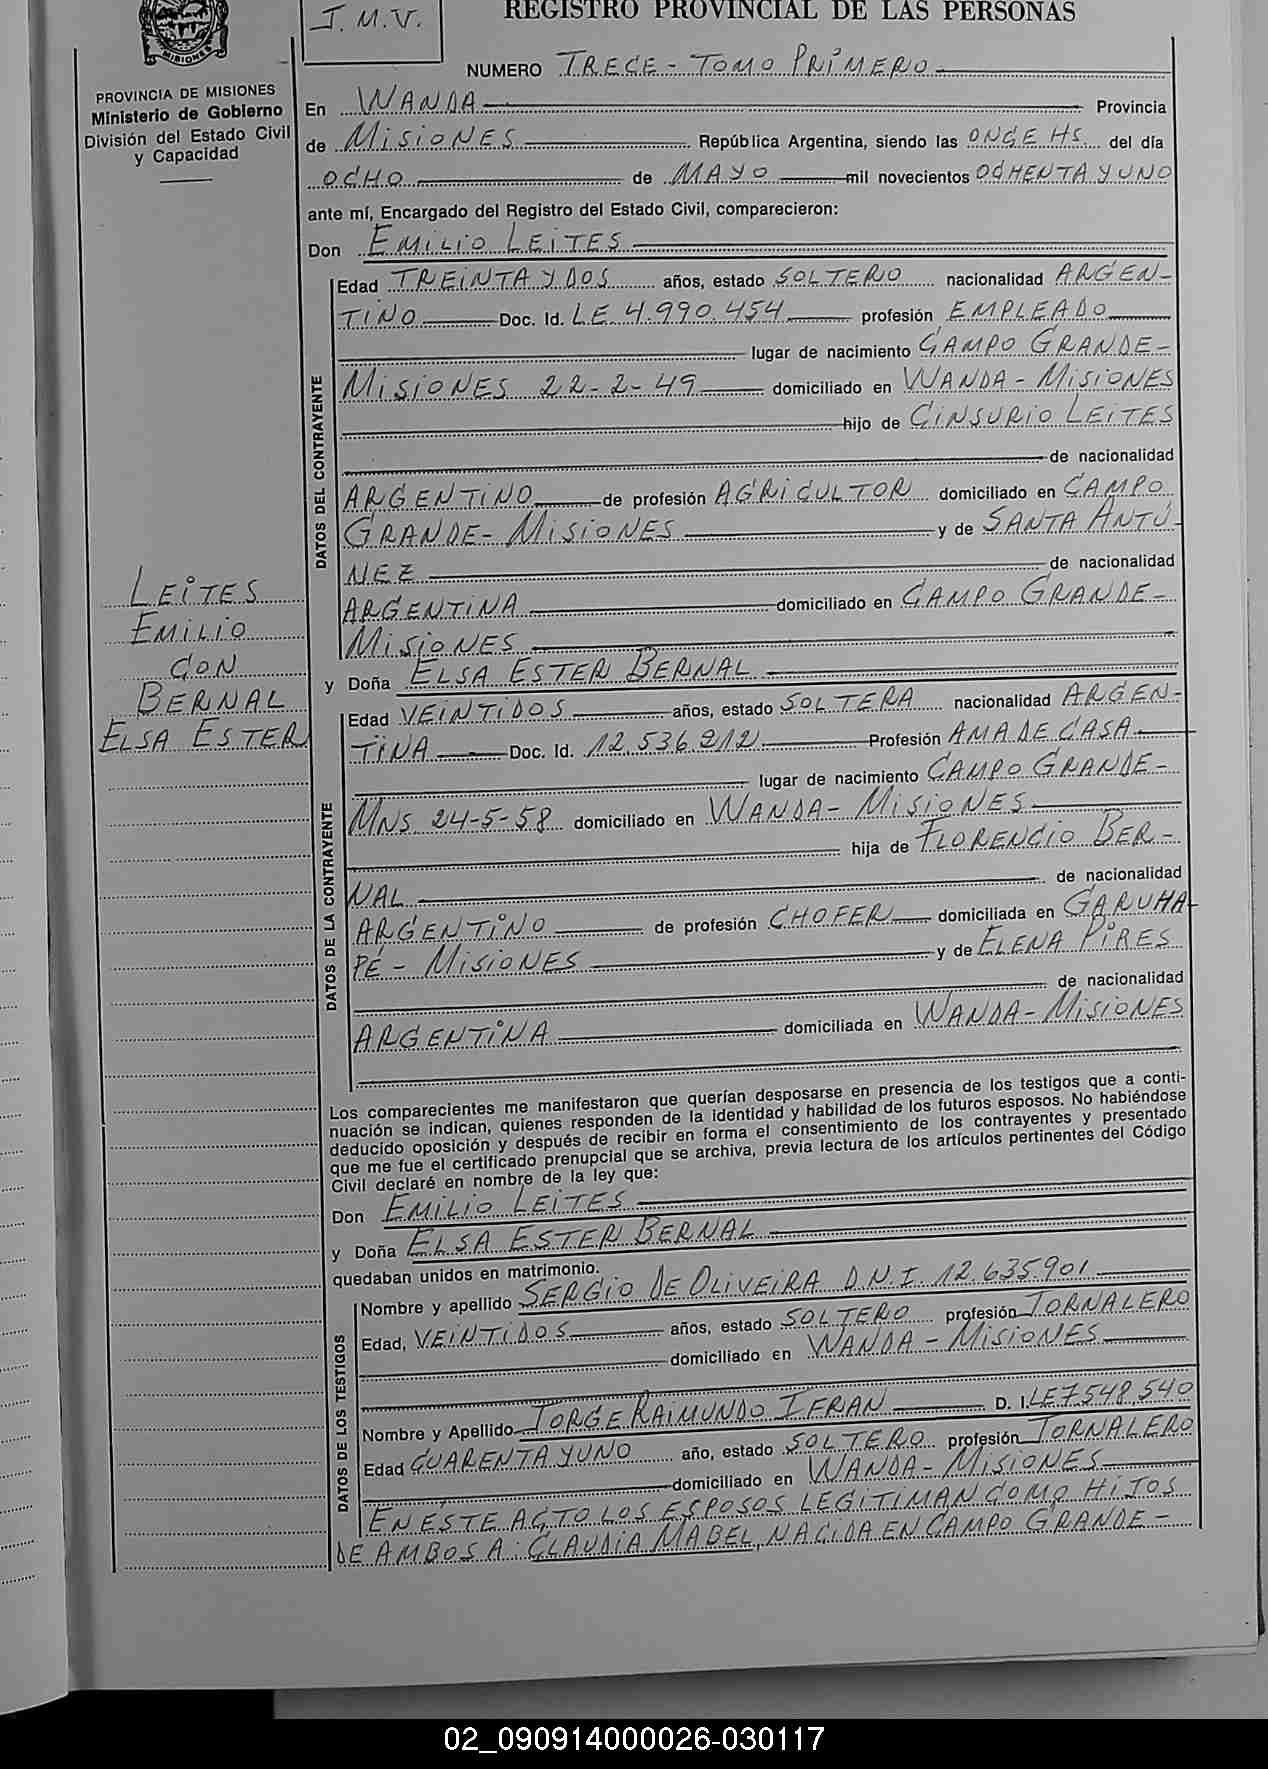 REGISTRO PROVINCIAL DE LAS PERSONAS
J. M. V.
MISIONES
NUMERO TRECE - TOMO PRIMERO
PROVINCIA DE MISIONES
Ministerio de Gobierno
División del Estado Civil
y Capacidad
En WANDA Provincia
de MISIONES República Argentina, siendo las ONCE HS. del día
OCHO de MAYO mil novecientos OCHENTA Y UNO
ante mí, Encargado del Registro del Estado Civil, comparecieron:
Don EMILIO LEITES
DATOS DEL CONTRAYENTE
Edad TREINTA Y DOS años, estado SOLTERO nacionalidad ARGEN-
TINO Doc. Id. LE 4.990.454 profesión EMPLEADO
lugar de nacimiento CAMPO GRANDE-
MISIONES 22-2-49 domiciliado en WANDA - MISIONES
hijo de CINSURIO LEITES
de nacionalidad
ARGENTINO de profesión AGRICULTOR domiciliado en CAMPO
GRANDE - MISIONES y de SANTA ANTÚ-
NEZ de nacionalidad
ARGENTINA domiciliado en CAMPO GRANDE-
MISIONES
LEITES
EMILIO
CON
BERNAL
ELSA ESTER
y Doña ELSA ESTER BERNAL
DATOS DE LA CONTRAYENTE
Edad VEINTIDOS años, estado SOLTERA nacionalidad ARGEN-
TINA Doc. Id. 12.536.212 Profesión AMA DE CASA
lugar de nacimiento CAMPO GRANDE-
MNS. 24-5-58 domiciliado en WANDA - MISIONES
hija de FLORENCIO BER-
NAL de nacionalidad
ARGENTINO de profesión CHOFER domiciliada en GARUHA-
PÉ - MISIONES y de ELENA PIRES
de nacionalidad
ARGENTINA domiciliada en WANDA - MISIONES
Los comparecientes me manifestaron que querían desposarse en presencia de los testigos que a conti-
nuación se indican, quienes responden de la identidad y habilidad de los futuros esposos. No habiéndose
deducido oposición y después de recibir en forma el consentimiento de los contrayentes y presentado
que me fue el certificado prenupcial que se archiva, previa lectura de los artículos pertinentes del Código
Civil declaré en nombre de la ley que:
Don EMILIO LEITES
y Doña ELSA ESTER BERNAL
quedaban unidos en matrimonio.
DATOS DE LOS TESTIGOS
Nombre y apellido SERGIO DE OLIVEIRA D.N.I. 12.635.901
Edad, VEINTIDOS años, estado SOLTERO profesión JORNALERO
domiciliado en WANDA - MISIONES
Nombre y Apellido JORGE RAIMUNDO IFRAN D. I. LE 7.548.540
Edad CUARENTA Y UNO año, estado SOLTERO profesión JORNALERO
domiciliado en WANDA - MISIONES
EN ESTE ACTO LOS ESPOSOS LEGITIMAN COMO HIJOS
DE AMBOS A: CLAUDIA MABEL, NACIDA EN CAMPO GRANDE -
02_090914000026-030117